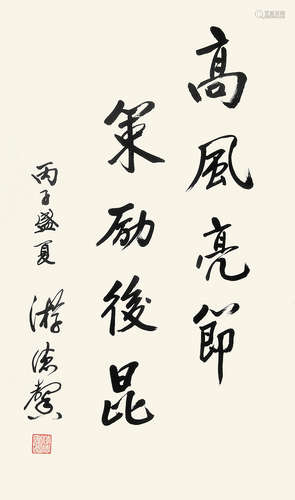 高風亮節
策励後昆
丙子盛夏 游德馨